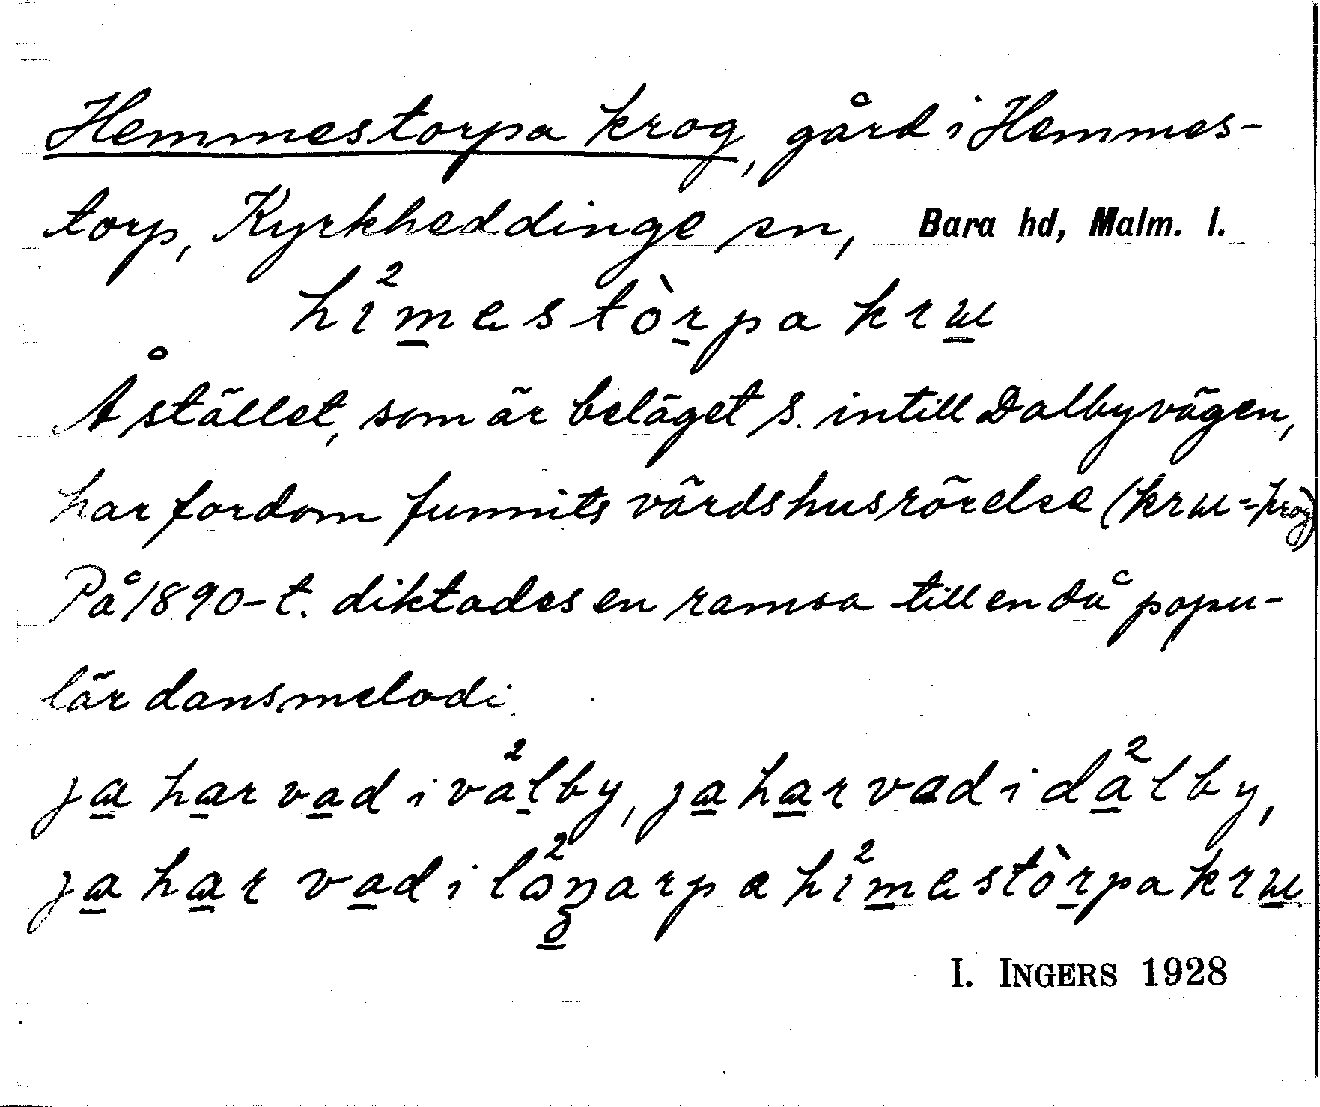 Hemmestorpa krog, gård i Hemmes-
torp, Kyrkheddinge sn, Bara hd, Malm. l.
hi²mestòrpa kru
Å stället, som är beläget S. intill Dalbyvägen,
har fordom funnits värdshusrörelse (kru = krog)
På 1890-t. diktades en ramsa till en då popu-
lär dansmelodi
ja har vad i va²lby, ja har vad i da²lby,
ja har vad i lo²ŋarp a hi²mestòrpa kru.
I. INGERS 1928